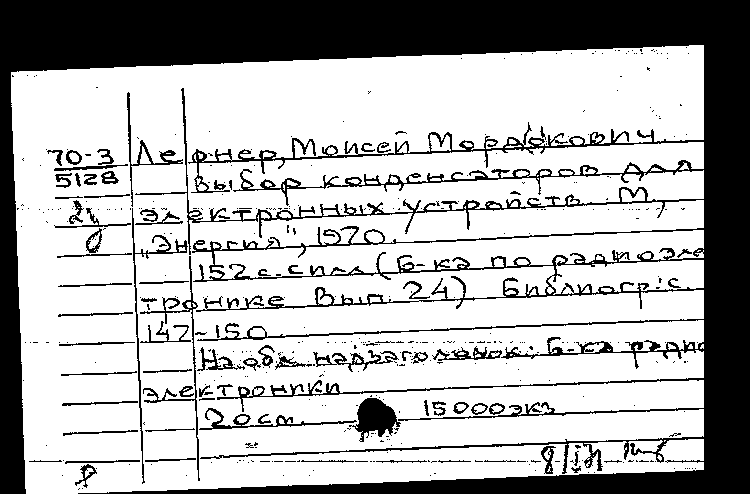 70-3 Лернер, Моисей Мордкович
5128 Выбор конденсаторов для
электронных устройств. М,
„Энергия", 1970.
152 с. с илл (Б-ка по радиоэлек
тронике Вып. 24) Библиогр: с.
147-150
На обл надзаголовок: Б-ка радио
электроники
20 см. 15000 экз